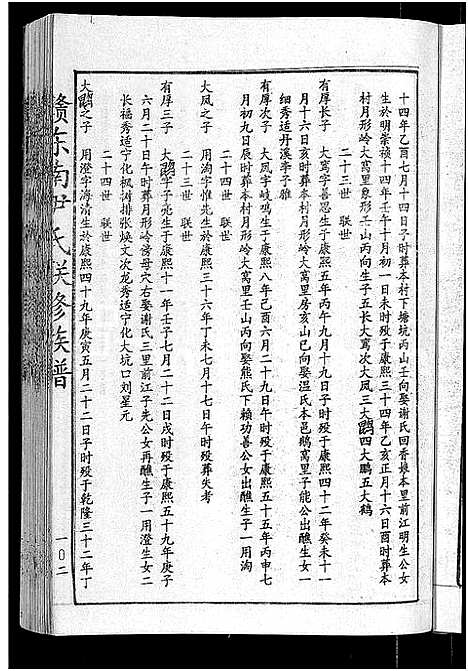 十四年乙酉七月十四日子时葬本村下塘坑丙山壬向娶谢氏回香娘本里前江明生公女
生於明崇祯十四年壬午十月初一日未时殁于康熙三十四年乙亥正月十六日酉时葬本
村月形岭大窝里象形壬山丙向生子五长大鸾次大凤三大鹍四大鹏五大鹤
二十三世 联世
有厚长子 大鸾字喜恩生于康熙五年丙午九月十九日子时殁于康熙四十二年癸未十一
月十六日亥时葬本村月形岭大窝里房亥山巳向娶温氏本邑鹅窝里子能公出醮生女一
细秀适丹溪李子雅
有厚次子 大凤字岐鸣生于康熙八年己酉六月二十九日午时殁于康熙五十五年丙申七
月初九日辰时葬本村月形岭大窝里壬山丙向娶熊氏下赖功善公女出醮生子一用洵
二十四世 联世
大凤之子 用洵字惟先生於康熙三十六年丁未七月十七日午时殁葬失考
二十三世 联世
有厚三子 大鹍字子亮生于康熙十一年壬子七月二十二日戌时殁于康熙五十九年庚子
六月二十日午时葬月形岭傍母穴右娶谢氏三里前江子先公女再醮生子一用澄生女二
长福秀适宁化枫树排张焕文次龙秀适宁化大坑口刘星元
二十四世 联世
大鹍之子 用澄字海清生於康熙四十九年庚寅五月二十二日子时殁于乾隆三十二年丁
赣东南尹氏联修族谱
一〇二